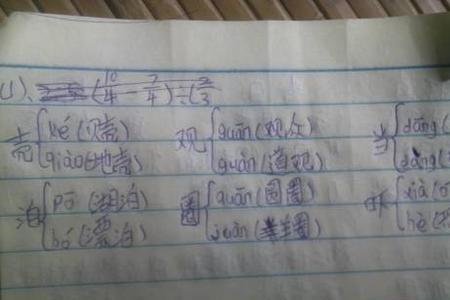 (1)、(10/4 7/4)÷(2/3
壳 { ké (贝壳) 观 { guān (观众) 当 { dāng (
qiào (地壳) guàn (道观) dàng (
泊 { pō (湖泊) 圈 { quān (圆圈) 吓 { xià (
bó (漂泊) juàn (羊圈) hè (